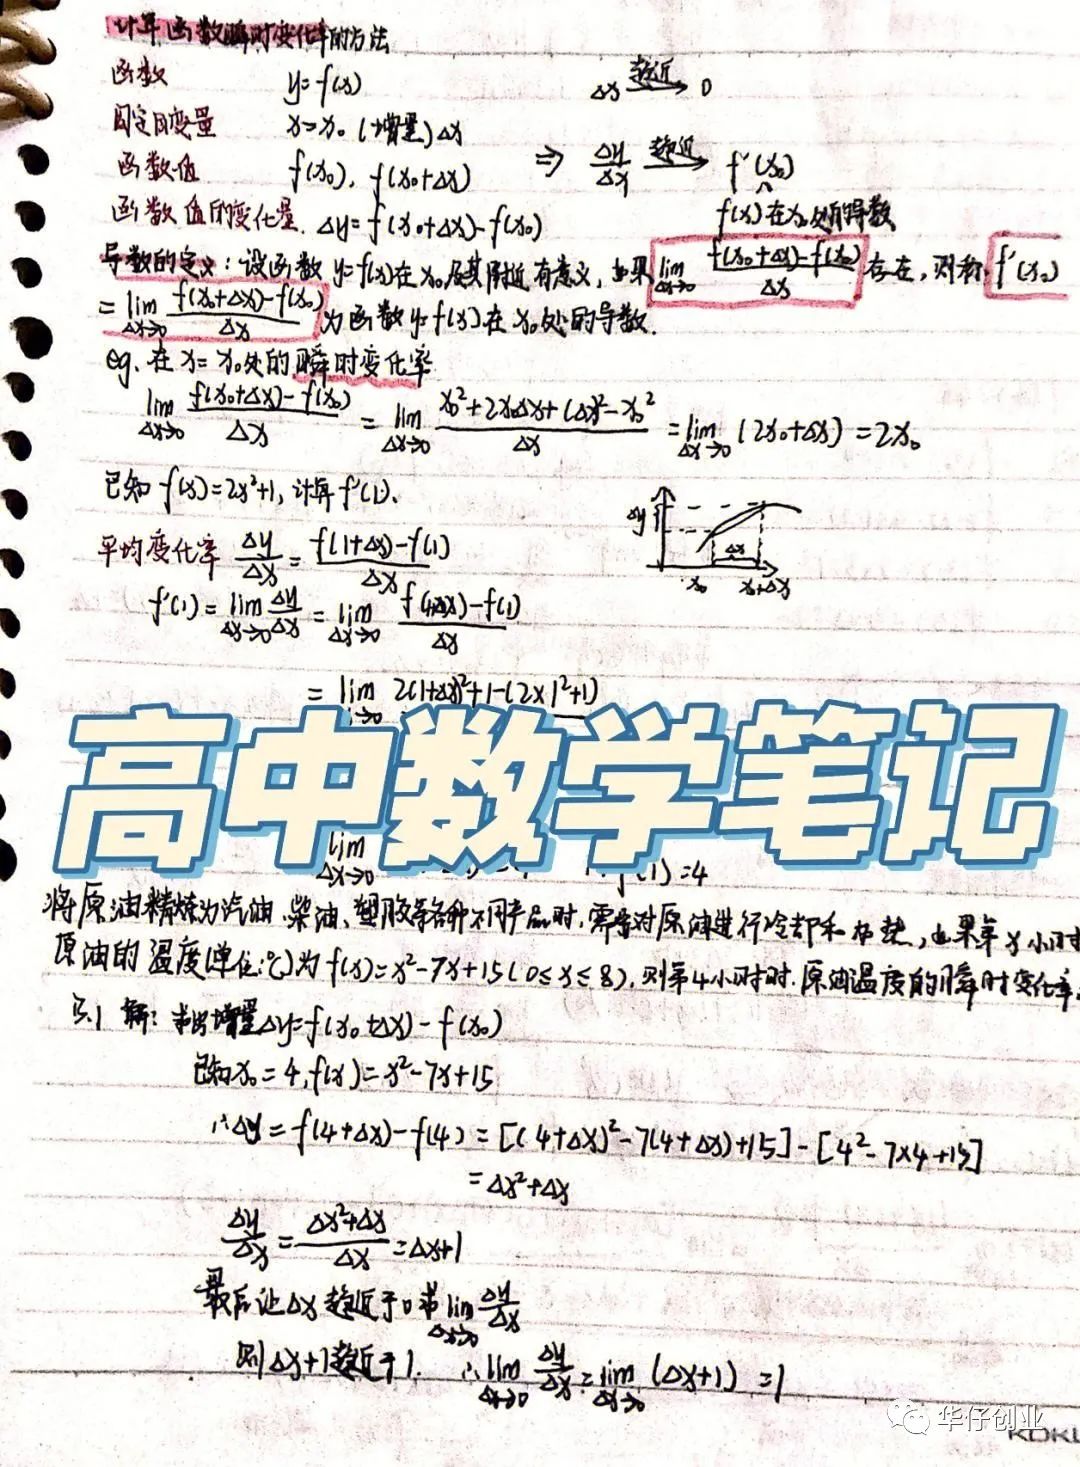 计算函数瞬时变化率的方法
函数 y=f(x) Δx 趋近→ 0
固定自变量 x=x₀ (+增量) Δx
函数值 f(x₀), f(x₀+Δx) ⇒ Δy/Δx 趋近→ f'(x₀)
函数值的变化量. Δy=f(x₀+Δx)-f(x₀) f(x)在x₀处的导数
导数的定义：设函数 y=f(x)在x₀及其附近有意义, 如果 lim Δx→0 (f(x₀+Δx)-f(x₀))/Δx 存在, 则称 f'(x₀)
= lim Δx→0 (f(x₀+Δx)-f(x₀))/Δx 为函数y=f(x)在x₀处的导数.
eg. 在x=x₀处的瞬时变化率
lim Δx→0 (f(x₀+Δx)-f(x₀))/Δx = lim Δx→0 (x₀²+2x₀Δx+(Δx)²-x₀²)/Δx = lim Δx→0 (2x₀+Δx) = 2x₀
已知 f(x)=2x²+1, 计算 f'(1).
Δy Δx x₀ x₀+Δx
平均变化率 Δy/Δx = (f(1+Δx)-f(1))/Δx
f'(1) = lim Δx→0 Δy/Δx = lim Δx→0 (f(1+Δx)-f(1))/Δx
= lim →0 2(1+Δx)²+1-(2×1²+1)
高中数学笔记
lim Δx→0 (1)=4
将原油精炼为汽油、柴油、塑胶等各种不同产品时, 需要对原油进行冷却和加热, 如果第x小时
原油的温度(单位:℃)为 f(x)=x²-7x+15(0≤x≤8), 则第4小时时. 原油温度的瞬时变化率
解: 求出增量Δy=f(x₀+Δx)-f(x₀)
已知x₀=4, f(x)=x²-7x+15
∴Δy=f(4+Δx)-f(4)=[(4+Δx)²-7(4+Δx)+15]-[4²-7×4+15]
=Δx²+Δx
Δy/Δx = (Δx²+Δx)/Δx = Δx+1
最后让Δx趋近于0求 lim Δx→0 Δy/Δx
则Δx+1趋近于1. ∴ lim Δx→0 Δy/Δx = lim Δx→0 (Δx+1) =1
华仔创业
KOKU